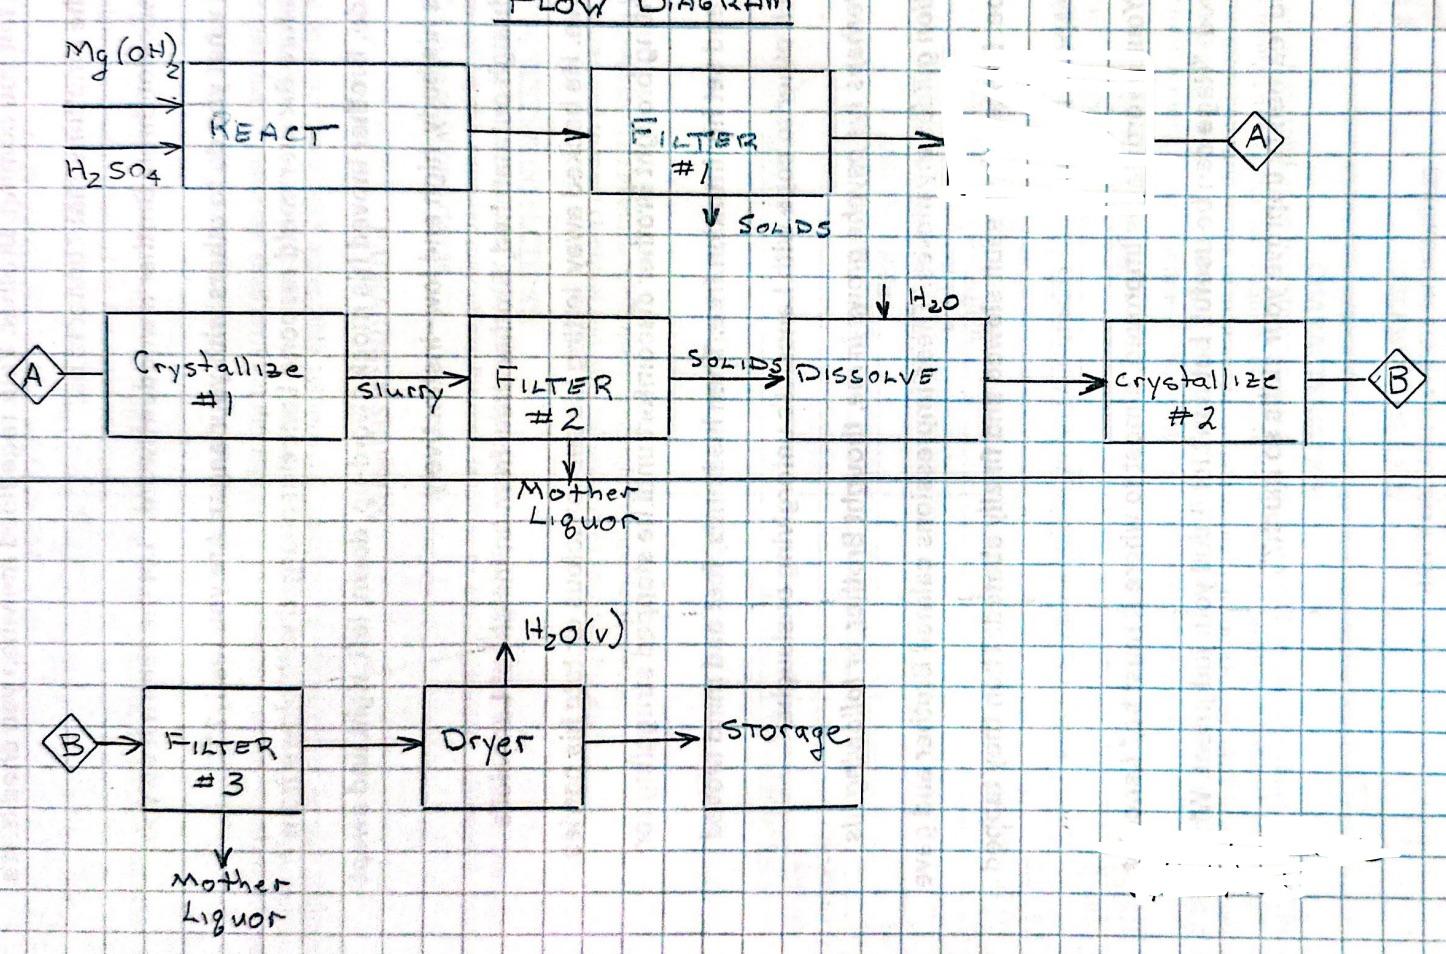 FLOW DIAGRAM
Mg(OH)₂
H₂SO₄
REACT
FILTER
#1
SOLIDS
A
A
Crystallize
#1
Slurry
FILTER
#2
Mother
Liquor
SOLIDS
H₂O
DISSOLVE
Crystallize
#2
B
B
FILTER
#3
Mother
Liquor
H₂O(v)
Dryer
Storage